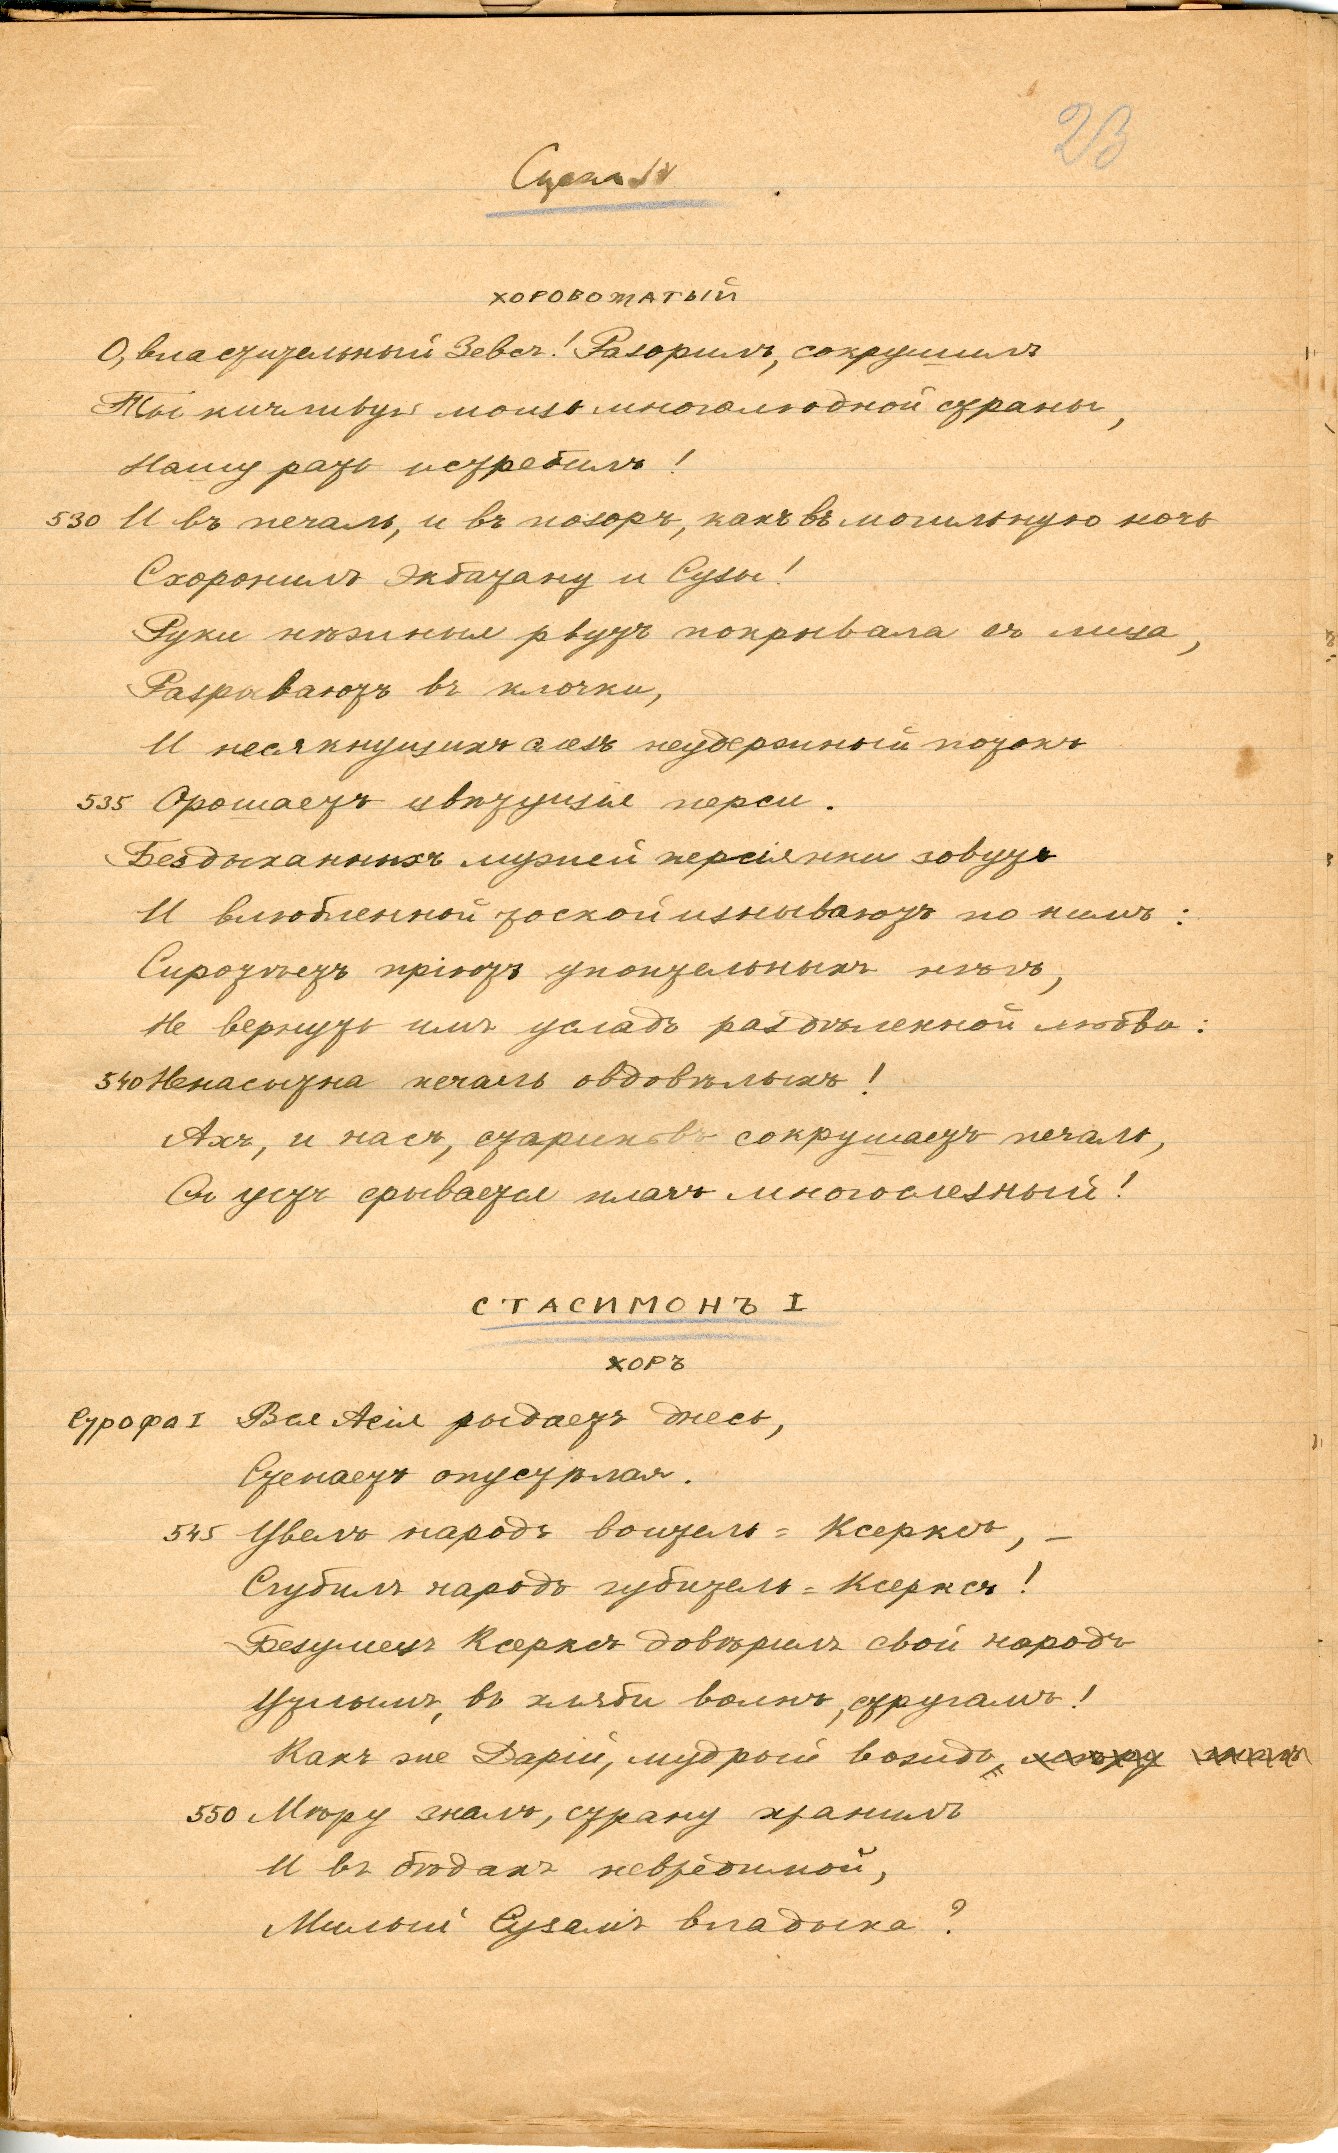 23
Сцена IV
ХОРОВОЖАТЫЙ
О, властительный Зевсъ! Разорилъ, сокрушилъ
Ты кичливую мощь многолюдной страны,
Нашу рать истребилъ!
530 И въ печаль, и въ позоръ, какъ въ могильную ночь
Схоронилъ Экбатану и Сузы!
Руки нѣжныя рвутъ покрывала съ лица,
Разрываютъ въ клочки,
И несякнущихъ слезъ неудержный потокъ
535 Орошаетъ цвѣтущія перси.
Бездыханныхъ мужей персіянки зовутъ
И влюбленной тоской изнываютъ по нимъ:
Сиротѣетъ пріютъ упоительныхъ нѣгъ,
Не вернуть имъ усладъ раздѣленной любви:
540 Ненасытна печаль овдовѣлыхъ!
Ахъ, и насъ, стариковъ сокрушаетъ печаль,
Съ устъ срывается плачъ многослезный!
СТАСИМОНЪ I
ХОРЪ
Строфа I Вся Асія рыдаетъ днесь,
Стенаетъ опустѣлая.
545 Увелъ народъ воитель-Ксерксъ, –
Сгубилъ народъ губитель-Ксерксъ!
Безумецъ Ксерксъ довѣрилъ свой народъ
Утлымъ, въ хляби волнъ, стругамъ!
Какъ же Дарій, мудрый вождь,
550 Мѣру зналъ, страну хранилъ
И въ бѣдахъ невредимой,
Милый Сузамъ владыка?